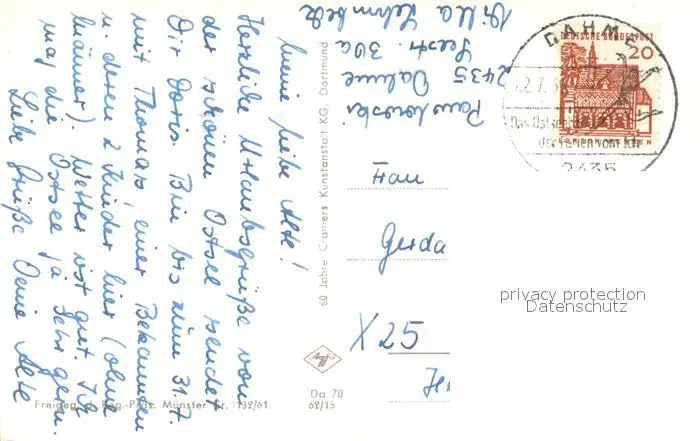 Meine liebe Alte!
Herzliche Urlaubsgrüße von
der schönen Ostsee sendet
Dir Doris. Bin bis zum 31.7.
mit Thomas, einer Bekannten
u. deren 2 Kinder hier (ohne
Männer). Wetter ist gut. Ich
mag die Ostsee ja sehr gern.
Liebe Grüße Deine Alte
2435 Dahme
Seestr. 30a
Villa
60 Jahre Cramers Kunstanstalt KG, Dortmund
DAHME
2435
DEUTSCHE BUNDESPOST
20
Frau
Gerda
X 25
privacy protection
Datenschutz
Da 70
62/15
Freigeg. d. Reg.-Präs. Münster Nr. 1132/61